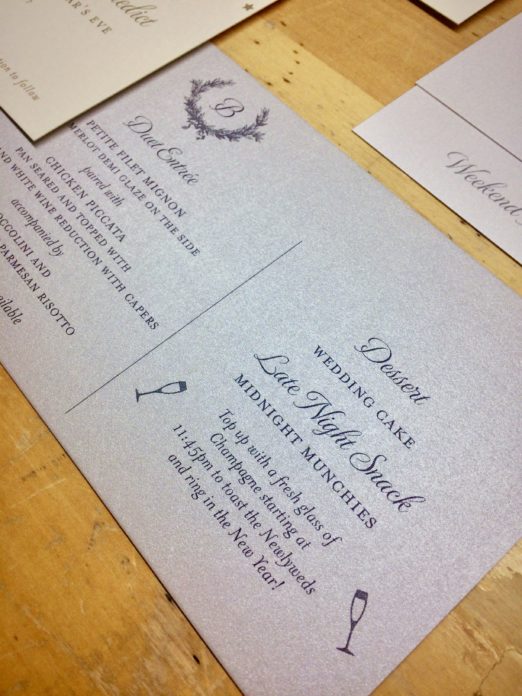 edict
AR'S EVE
tion to follow
B
Duet Entrée
PETITE FILET MIGNON
MERLOT DEMI GLAZE ON THE SIDE
paired with
CHICKEN PICCATA
PAN SEARED AND TOPPED WITH
AND WHITE WINE REDUCTION WITH CAPERS
accompanied by
OCCOLINI AND
PARMESAN RISOTTO
vailable
Dessert
WEDDING CAKE
Late Night Snack
MIDNIGHT MUNCHIES
Top up with a fresh glass of
Champagne starting at
11:45pm to toast the Newlyweds
and ring in the New Year!
Weekend